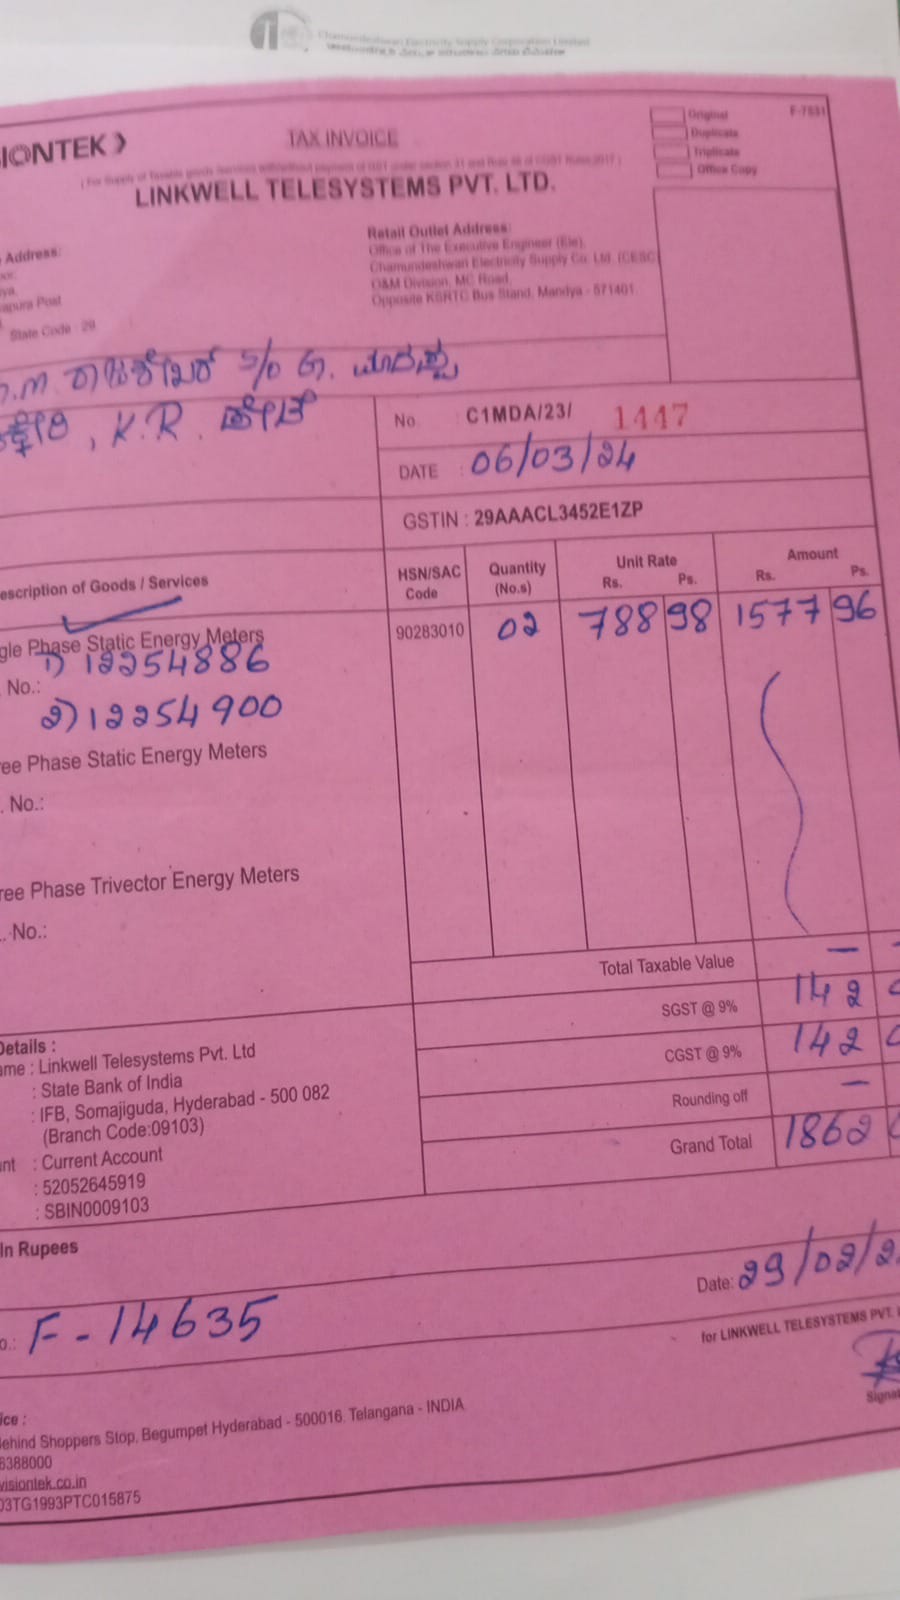 Chamundeshwari Electricity Supply Corporation Limited
IONTEK
TAX INVOICE
Original
F-7531
Duplicate
Triplicate
Office Copy
LINKWELL TELESYSTEMS PVT. LTD.
Address:
Retail Outlet Address:
Office of The Executive Engineer (Ele),
Chamundeshwari Electricity Supply Co. Ltd. (CESC
O&M Division, MC Road,
Opposite KSRTC Bus Stand, Mandya - 571401.
apura Post
State Code : 29
S/o
K.R.
No. C1MDA/23/ 1447
DATE : 06/03/24
GSTIN : 29AAACL3452E1ZP
escription of Goods / Services
HSN/SAC Code
Quantity (No.s)
Unit Rate Rs. Ps.
Amount Rs. Ps.
gle Phase Static Energy Meters
90283010 02 788 98 1577 96
No.: 1) 12254886
2) 12254900
ee Phase Static Energy Meters
. No.:
ree Phase Trivector Energy Meters
. No.:
Total Taxable Value —
SGST @ 9% 142
CGST @ 9% 142
Rounding off —
Grand Total 1862
Details :
ame : Linkwell Telesystems Pvt. Ltd
: State Bank of India
: IFB, Somajiguda, Hyderabad - 500 082
(Branch Code:09103)
nt : Current Account
: 52052645919
: SBIN0009103
In Rupees
o.: F-14635
Date: 29/02/2
for LINKWELL TELESYSTEMS PVT.
Signa
ice :
ehind Shoppers Stop, Begumpet Hyderabad - 500016. Telangana - INDIA
6388000
visiontek.co.in
03TG1993PTC015875